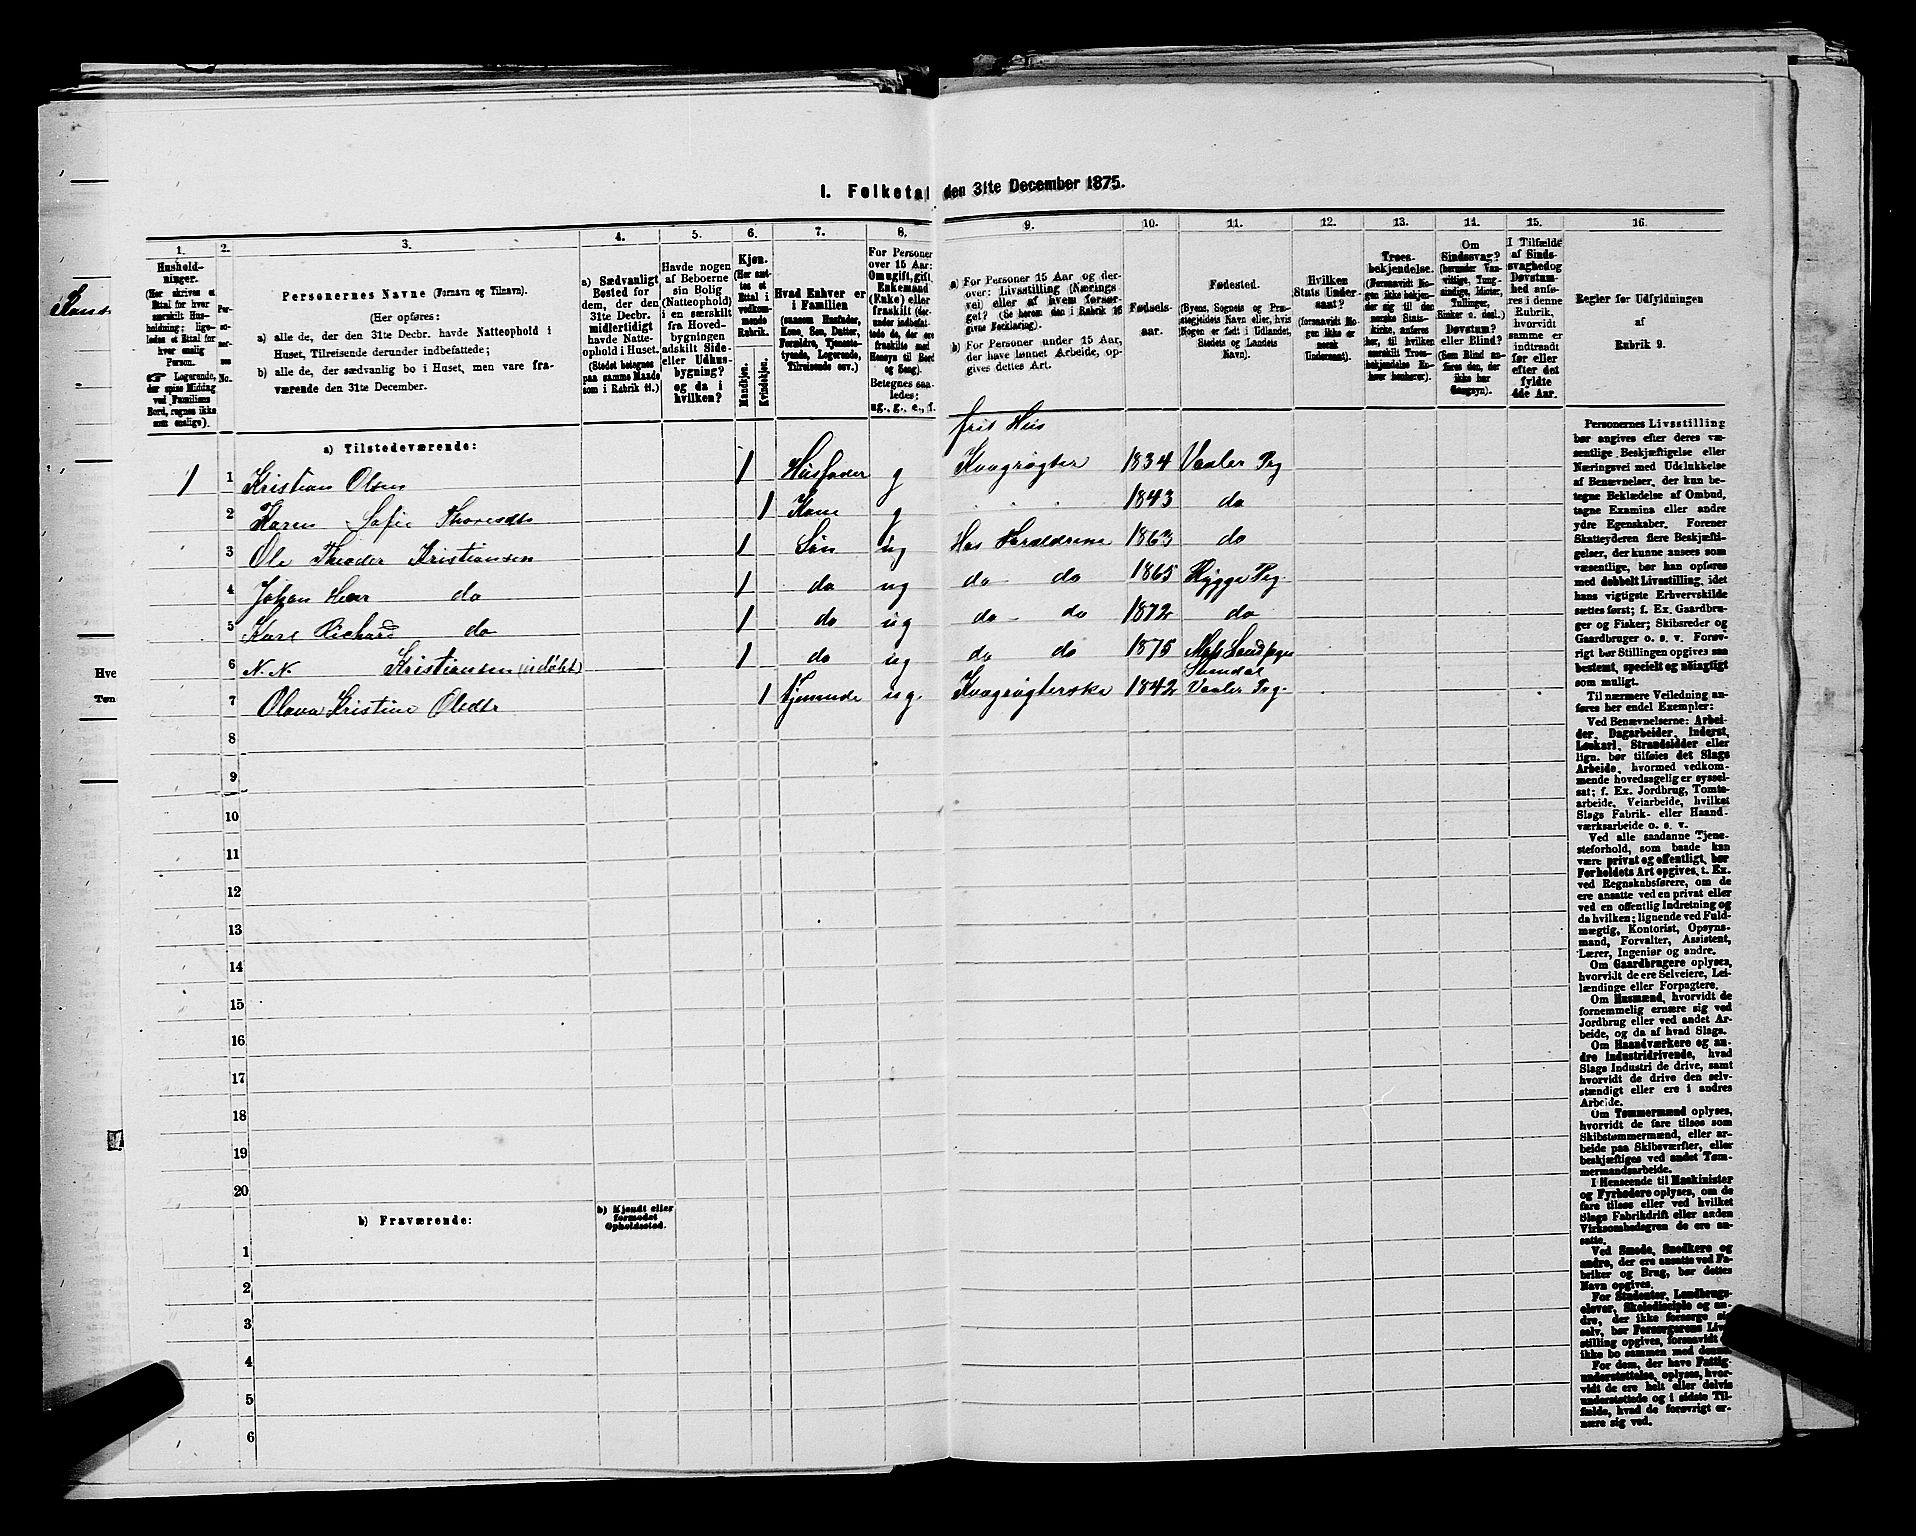 I. Folketal den 31te December 1875.
1. 2. 3. 4. 5. 6. 7. 8. 9. 10. 11. 12. 13. 14. 15. 16.
Husholdninger.
(Her skrives et Ettal for hver særskilt Husholdning; ligeledes et Ettal for hver enslig Person.
Logerende, der spise Middag ved Familiens Bord, regnes ikke som enslige).
Personernes No.
Personernes Navne (Fornavn og Tilnavn).
(Her opføres:
a) alle de, der den 31te Decbr. havde Natteophold i Huset, Tilreisende derunder indbefattede;
b) alle de, der sædvanlig bo i Huset, men vare fraværende den 31te December.
a) Sædvanligt Bosted for dem, der den 31te Decbr. midlertidigt havde Natteophold i Huset.
(Stedet betegnes paa samme Maade som i Rubrik 11.)
Havde nogen af Beboerne sin Bolig (Natteophold) i en særskilt fra Hovedbygningen adskilt Side eller Udhusbygning? og da i hvilken?
Kjøn.
(Her sættes et Ettal i vedkommende Rubrik.
Mandkjøn.
Kvindekjøn.
Hvad Enhver er i Familien
(saasom Husfader, Kone, Søn, Datter, Forældre, Tjenestetyende, Logerende, Tilreisende osv.)
For Personer over 15 Aar: Om ugift, gift, Enkemand (Enke) eller fraskilt
Betegnes saaledes: ug., g., e., f.
a) For Personer 15 Aar og derover: Livsstilling (Næringsvei) eller af hvem forsørget? (Se herom den i Rubrik 16 givne Forklaring).
b) For Personer under 15 Aar, der have lønnet Arbeide, opgives dettes Art.
Fødselsaar.
Fødested.
(Byens, Sognets og Præstegjeldets Navn eller, hvis Nogen er født i Udlandet, Stedets og Landets Navn).
Hvilken Stats Undersaat?
(forsaavidt Nogen ikke er norsk Undersaat).
Troesbekjendelse.
(Forsaavidt Nogen ikke bekjender sig til den norske Statskirke, anføres her, til hvilken særskilt Troesbekjendelse Enhver henhører).
Om Sindssvag?
(herunder Vanvittige, Tungsindige, Idioter, Tullinger, Sinker o. desl.)
Døvstum? eller Blind?
(Som Blind anføres den, der ikke har Gangsyn).
I Tilfælde af Sindssvaghed og Døvstumhed anføres i denne Rubrik, hvorvidt samme er indtraadt før eller efter det fyldte 4de Aar.
Regler for Udfyldningen
af
Rubrik 9.
a) Tilstedeværende:
frit Hus
1 1 Kristian Olsen 1 Husfader g Kvægrøgter 1834 Vaaler Pg
2 Karen Sofie Thoresdtr 1 Kone g 1843 do
3 Ole Theodor Kristiansen 1 Søn ug Hos Forældrene 1863 do
4 Johan do 1 do ug do do 1865 Rygge Pg.
5 Karl Richard do 1 do ug do do 1872 do
6 N.N. Kristiansen (udøbt) 1 do ug do do 1875
7 Olava Kristine Olsdtr 1 Tjenende ug. Kvægrøgterske 1842 Vaaler Pg.
8
9
10
11
12
13
14
15
16
17
18
19
20
b) Fraværende:
b) Kjendt eller formodet Opholdssted.
1
2
3
4
5
6
Personernes Livsstilling
bør angives efter deres væsentlige Beskjæftigelse eller
Næringsvei med Udelukkelse
af Benævnelser, der kun betegne Beklædelse af Ombud,
tagne Examina eller andre
ydre Egenskaber. Forener
Skatteyderen flere Beskjæftigelser, der kunne ansees som
væsentlige, bør han opføres
med dobbelt Livsstilling, idet
hans vigtigste Erhvervskilde
sættes først; f. Ex. Gaardbruger og Fisker; Skibsreder og
Gaardbruger o. s. v. Forøvrigt bør Stillingen opgives saa
bestemt, specielt og nöiagtigt
som muligt.
Til nærmere Veiledning anføres her endel Exempler:
Ved Benævnelserne: Arbeider, Dagarbeider, Inderst,
Løskarl, Strandsidder eller
lign. bør tilføies det Slags
Arbeide, hvormed vedkommende hovedsagelig er sysselsat; f. Ex. Jordbrug, Tomtearbeide, Veiarbeide, hvilket
Slags Fabrik- eller Haandværksarbeide o. s. v.
Ved alle saadanne Tjenesteforhold, som baade kan
være privat og offentligt, bør
Forholdets Art opgives, t. Ex.
ved Regnskabsførere, om de
ere ansatte ved en privat eller
ved en offentlig Indretning og
da hvilken; lignende ved Fuldmægtig, Kontorist, Opsynsmand, Forvalter, Assistent,
Lærer, Ingeniør og andre.
Om Gaardbrugere oplyses,
hvorvidt de ere Selveiere, Leilændinge eller Forpagtere.
Om Husmænd, hvorvidt de
fornemmelig ernære sig ved
Jordbrug eller ved andet Arbeide, og da af hvad Slags.
Om Haandværkere og andre Industridrivende, hvad
Slags Industri de drive, samt
hvorvidt de drive den selvstændigt eller ere i andres
Arbeide.
Om Tømmermænd oplyses,
hvorvidt de fare tilsøs som
Skibstømmermænd, eller arbeide paa Skibsværfter, eller
beskjæftiges ved andet Tømmermandsarbeide.
I Henseende til Maskinister
og Fyrbødere oplyses, om de
fare tilsøs eller ved hvilket
Slags Fabrikdrift eller anden
Virksomhedsgren de ere ansatte.
Ved Smede, Snedkere og
andre, der ere ansatte ved Fabriker og Brug, bør dettes
Navn opgives.
For Studenter, Landbrugselever, Skoledisciple og andre, der ikke forsørge sig
selv, bør Forsørgerens Livsstilling opgives, forsaavidt de
ikke bo sammen med denne.
For dem, der have Fattigunderstøttelse, oplyses, hvorvidt de ere helt eller delvis
understøttede og i sidste Tilfælde, hvad de forøvrigt ernære sig ved.